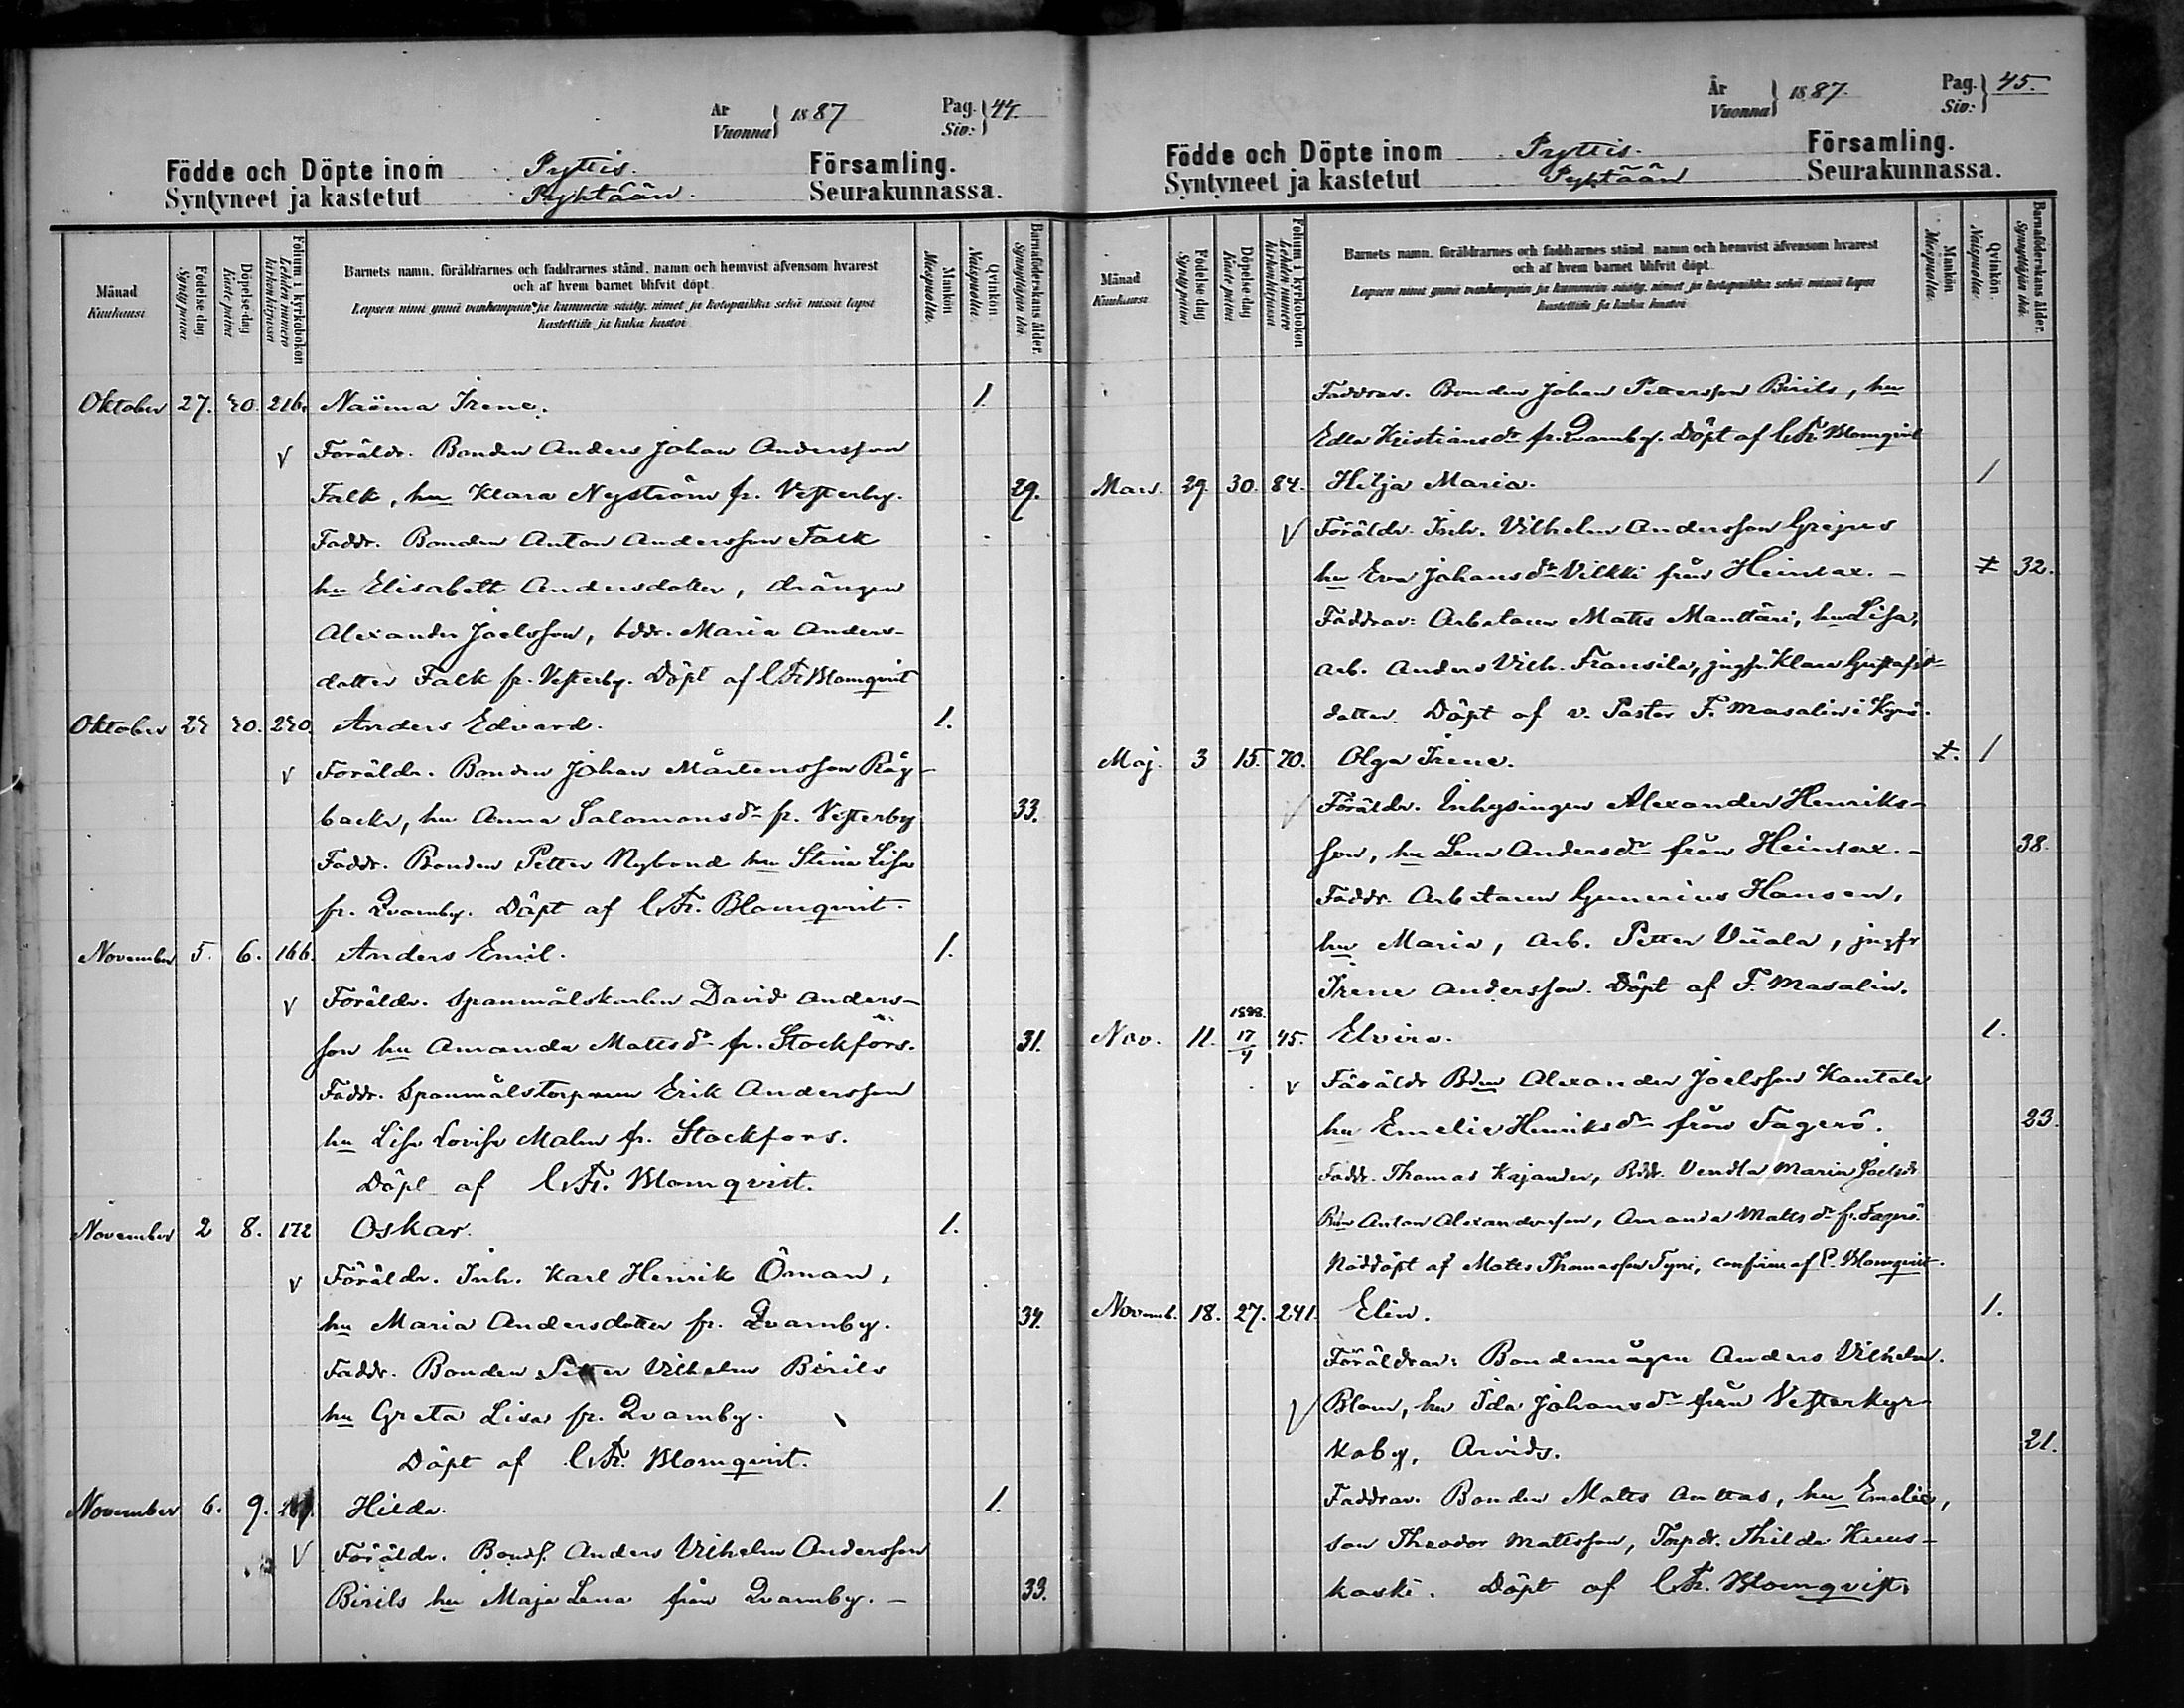 År
Vuonna } 1887
Pag.
Siv: } 44.
Födde och Döpte inom Pyttis. Församling.
Syntyneet ja kastetut Pyhtään. Seurakunnassa.
Månad
Kuukausi
Födelse-dag.
Synty päivä
Döpelse-dag.
Kaste päivä
Folium i kyrkobokon
Lehden numero kirkonkirjassa
Barnets namn, föräldrarnes och faddrarnes stånd, namn och hemvist äfvensom hvarest
och af hvem barnet blifvit döpt.
Lapsen nimi ynnä vanhempain ja kummein sääty, nimet ja kotopaikka sekä missä lapsi
kastettiin ja kuka kastoi
Mänkön
Miespuolia.
Qvinkön
Naispuolia.
Barnaföderskans ålder.
Synnyttäjän ikä.
Oktober 27. 30. 216. Naëma Irene. 1.
v Föräldr. Bonden Anders Johan Andersson
Falk, hu Klara Nyström fr. Vesterby. 29.
Faddr. Bonden Anton Andersson Falk
hu Elisabeth Andersdotter, drängen
Alexander Joelsson, bddr. Maria Anders-
dotter Falk fr. Vesterby. Döpt af C. Fr. Blomqvist
Oktober 30. Anders Edvard. 1.
v Föräldr. Bonden Johan Mårtensson Råg-
backa, hu Anna Salomonsdr fr. Vesterby 33.
Faddr. Bonden Petter Nybond hu Stina Lisa
fr. Qvarnby. Döpt af C. Fr. Blomqvist.
November 5. 6. 166. Anders Emil. 1.
v Föräldr. Spanmålskarlen David Anders-
son hu Amanda Mattsdr fr. Stockfors. 31.
Faddr. Spanmålstorparen Erik Andersson
hu Lisa Lovisa Malm fr. Stockfors.
Döpt af C. Fr. Blomqvist.
November 2 8. 172 Oskar. 1.
v Föräldr. Inh. Karl Henrik Öman,
hu Maria Andersdotter fr. Qvarnby. 34.
Faddr. Bonden Petter Vilhelm Birils
hu Greta Lisa fr. Qvarnby.
Döpt af C. Fr. Blomqvist.
November 6. 9. Hilda. 1.
v Föräldr. Bonds. Anders Vilhelm Andersson
Birils hu Maja Lena från Qvarnby. – 33.
År
Vuonna } 1887.
Pag.
Siv: } 45.
Födde och Döpte inom Pyttis. Församling.
Syntyneet ja kastetut Pyhtään Seurakunnassa.
Månad
Kuukausi
Födelse-dag
Synty päivä.
Döpelse-dag
Kaste päivä
Folium i kyrkobokon
Lehden numero kirkonkirjassa
Barnets namn, föräldrarnes och faddrarnes stånd, namn och hemvist äfvensom hvarest
och af hvem barnet blifvit döpt.
Lapsen nimi ynnä vanhempain ja kummein sääty, nimet ja kotopaikka sekä missä lapsi
kastettiin ja kuka kastoi
Mankön
Miespuolia.
Qvinkön.
Naispuolia.
Barnaföderskans ålder.
Synnyttäjän ikä.
Faddrar. Bonden Johan Pettersson Birils, hu
Edla Kristiansdr fr. Qvarnby. Döpt af C. Fr. Blomqvist
Mars. 29. 30. 84. Hilja Maria. 1
v Föräldr. Inh. Vilhelm Andersson Grejus
hu Eva Johansdr Vilkki från Heinlax. – 32.
Faddrar: Arbetaren Matts Manttäri, hu Lisa,
arb. Anders Vilh. Fransila, jngfr Klara Gustafs-
dotter. Döpt af v. Pastor F. Masalin i Kyrö.
Maj. 3 15. 70. Olga Irene. 1
Föräldr. Inhysingen Alexander Henriks-
son, hu Lena Andersdr från Heinlax. – 38.
Faddr. Arbetaren Gunerius Hansen,
hu Maria, arb. Petter Uuala, jngfr
Irene Andersson. Döpt af F. Masalin.
1888.
Nov. 11. 17/4 45. Elvira. 1.
v Föräldr Bden Alexander Joelsson Kantala
hu Emelie Henriksdr från Fagerö. 23.
Faddr. Thomas Kajander, Bddr. Vendla Maria Joelsdr
Bds Anton Alexandersson, Amanda Mattsdr fr. Fagerö.
Nöddöpt af Matts Thomasson Tyni, confirm. af C. Blomqvist.
Novemb. 18. 27. 241. Elin. 1.
Föräldrar: Bondemågen Anders Vilhelm.
v Blom, hu Ida Johansdr från Vesterkyr-
koby, Arvids. 21.
Faddrar. Bonden Matts Anttas, hu Emelie,
son Theodor Mattsson, Torpdr. Thilda Kuus-
koski. Döpt af C. Fr. Blomqvist.